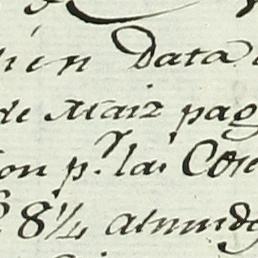 ien Data
de Maiz pag
on p.r las Cose
8 1/4 almudo